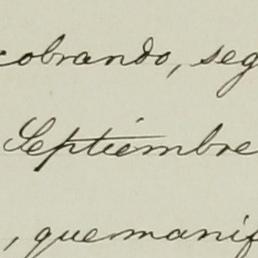 cobrando, seg
Septiembre
, quemanif